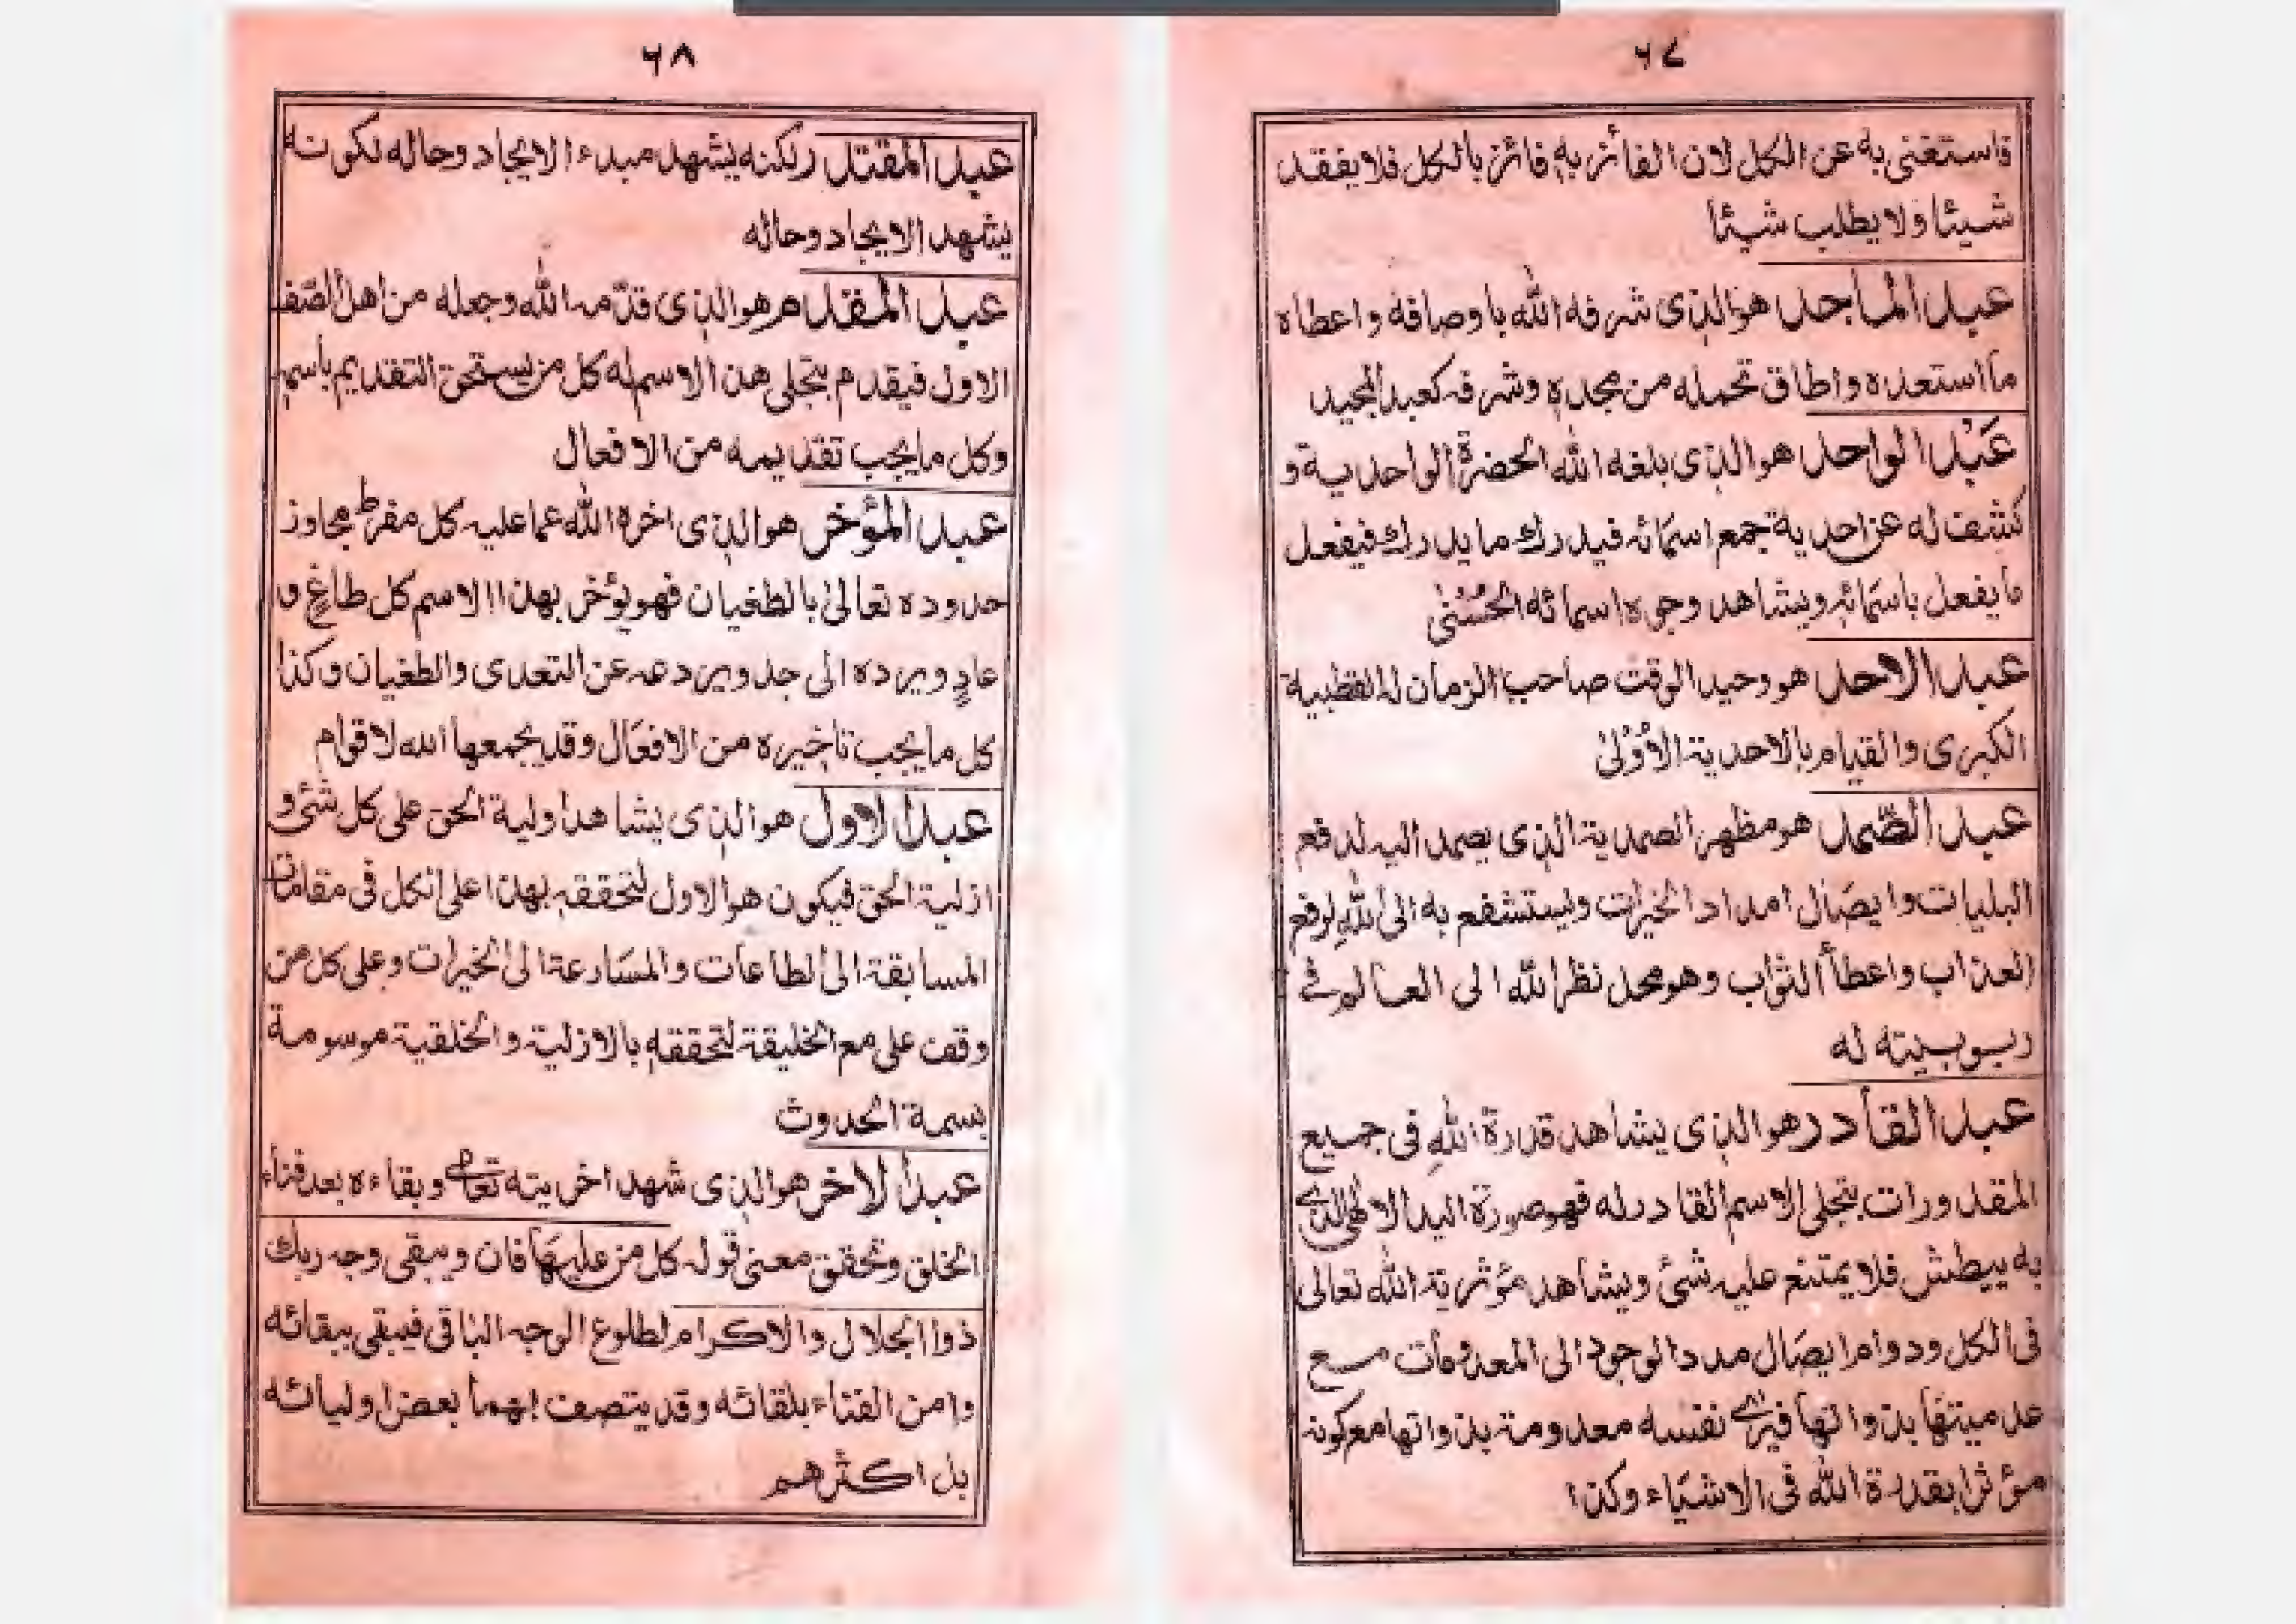 ٦٧
فاستغنى به عن الكل لان الفائز به فائز بالكل فلا يفقد
شيئا ولا يطلب شيئا
عبد الماجد هو الذى شرفه الله باوصافه و اعطاه
ما استعده و اطاق تحمله من مجده و شرفه كعبد المجيد
عَبْد الواحد هو الذى بلغه الله الحضرة الواحدية و
كشف له عن احدية جمع اسمائه فيدرك ما يدرك فيفعل
ما يفعل باسمائه ويشاهد وجوه اسمائه الحُسْنى
عبد الاحد هو وحيد الوقت صاحب الزمان له القطبية
الكبرى والقيام بالاحدية الاُوْلىٰ
عبد الصّمد هو مظهر الصمدية الذى يصمد اليه لدفع
البليات و ايصَال امداد الخيرات ويستشفع به الى اللهِ لرفع
العذاب واعطأ الثواب وهو محل نظر الله الى العالم فى
ربوبيته له
عبد القأدر هو الذى يشاهد قدرة اللهِ فى جميع
المقدورات بتجلى الاسم القادر له فهو صورة اليد الالٰهى الذے
به يبطش فلا يمتنع عليه شئ ويشاهد مؤثرية الله تعالى
فى الكل و دوام ايصَال مدد الوجود الى المعدومأت مع
عدميتها بذواتها فيرے نفسه معدومة بذواتها مع كونه
مؤثرا بقدرة الله فى الاشيَاء وكذا
٦٨
عبد المقتدر لكنه يشهد مبدء الايجاد وحاله لكونه
يشهد الايجاد وحاله
عبد المقدم هو الذى قدّمه الله وجعله من اهل الصّف
الاول فيقدم بتجلى هذا الاسم له كل من يستحق التقديم باسم
وكل ما يجب تقديمه من الافعال
عبد المؤخر هو الذى اخره الله عما عليه كل مفرط مجاوز
حدوده تعالىٰ بالطغيان فهو يؤخر بهذا الاسم كل طاغٍ و
عادٍ ويرده الى حد ويردعه عن التعدى والطغيان وكذا
كل ما يجب تاخيره من الافعَال وقد يجمعها الله لاقوام
عبد الاول هو الذى يشاهد اولية الحق على كل شئ و
ازلية الحق فيكون هو الاول لتحققه بهذا على الكل فى مقامات
المسابقة الى الطاعات والمسَارعة الى الخيرات وعلى كل من
وقف على مع الخليقة لتحققه بالازلية و الخلقية موسومة
بسمة الحدوث
عبد الاخر هو الذى شهد اخريته تعا وبقاءه بعد فناء
الخلق وتحقق معنى قوله كل من عليهَا فان ويبقى وجه ربك
ذوا الجلال والاكرام لطلوع الوجه الباقى فيبقى ببقائه
وامن الفناء بلقائه وقد يتصف بهما بعض اوليائه
بل اكثرهم